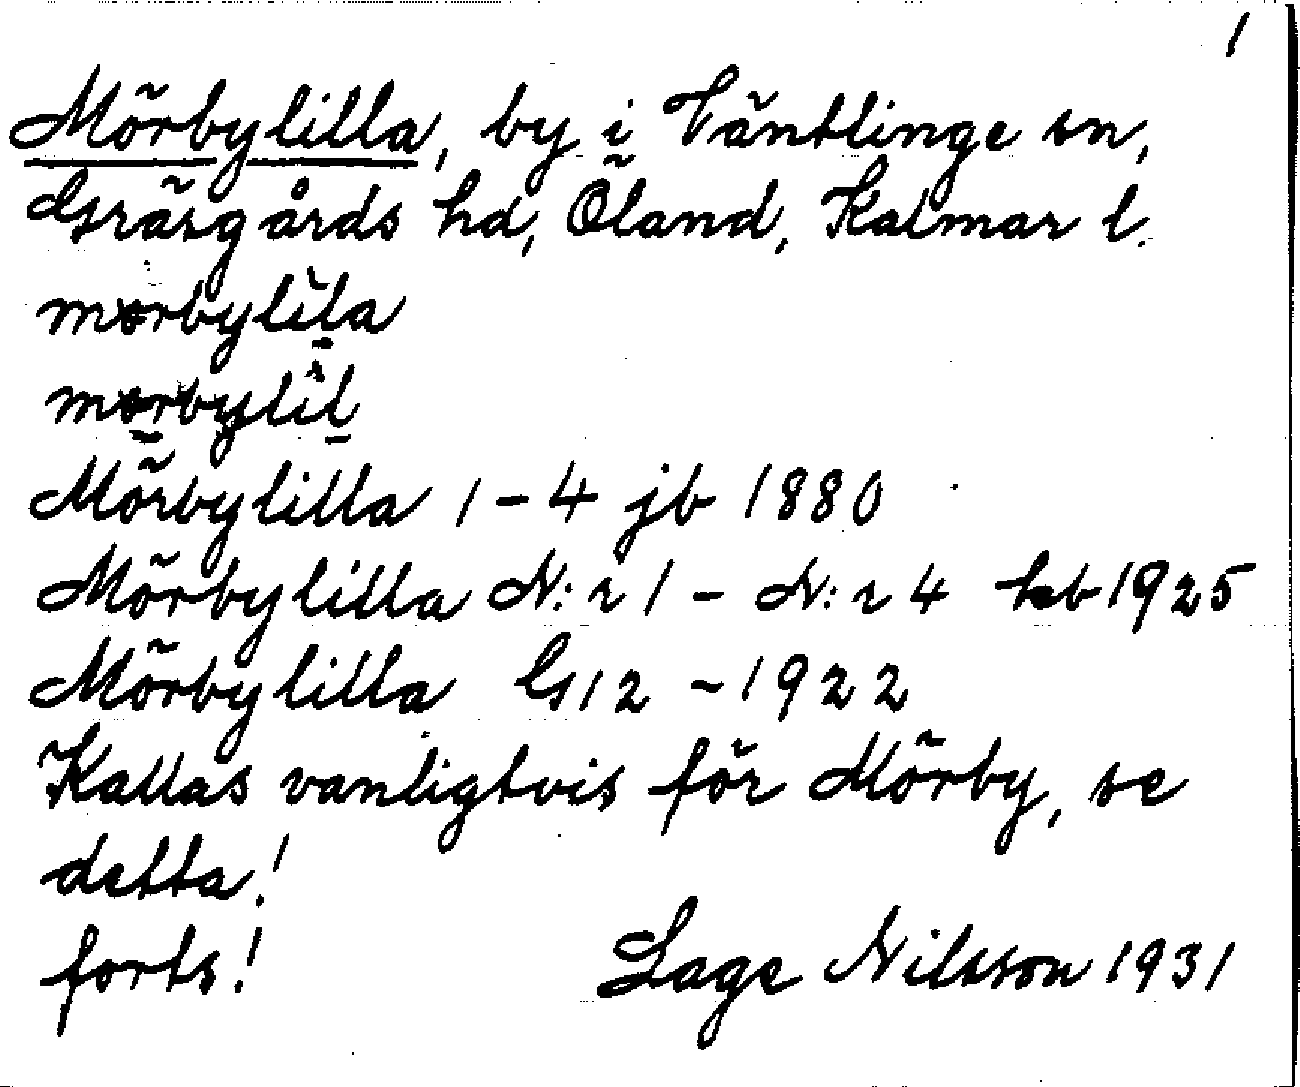 1
Mörbylilla, by i Ventlinge sn,
Gräsgårds hd, Öland, Kalmar l.
mørbylìla
mørbylìl
Mörbylilla 1-4 jb 1880
Mörbylilla N:r 1 - N:r 4 hb 1925
Mörbylilla G 112 - 1922
Kallas vanligtvis för Mörby, se
detta!
forts! Lage Nilsson 1931